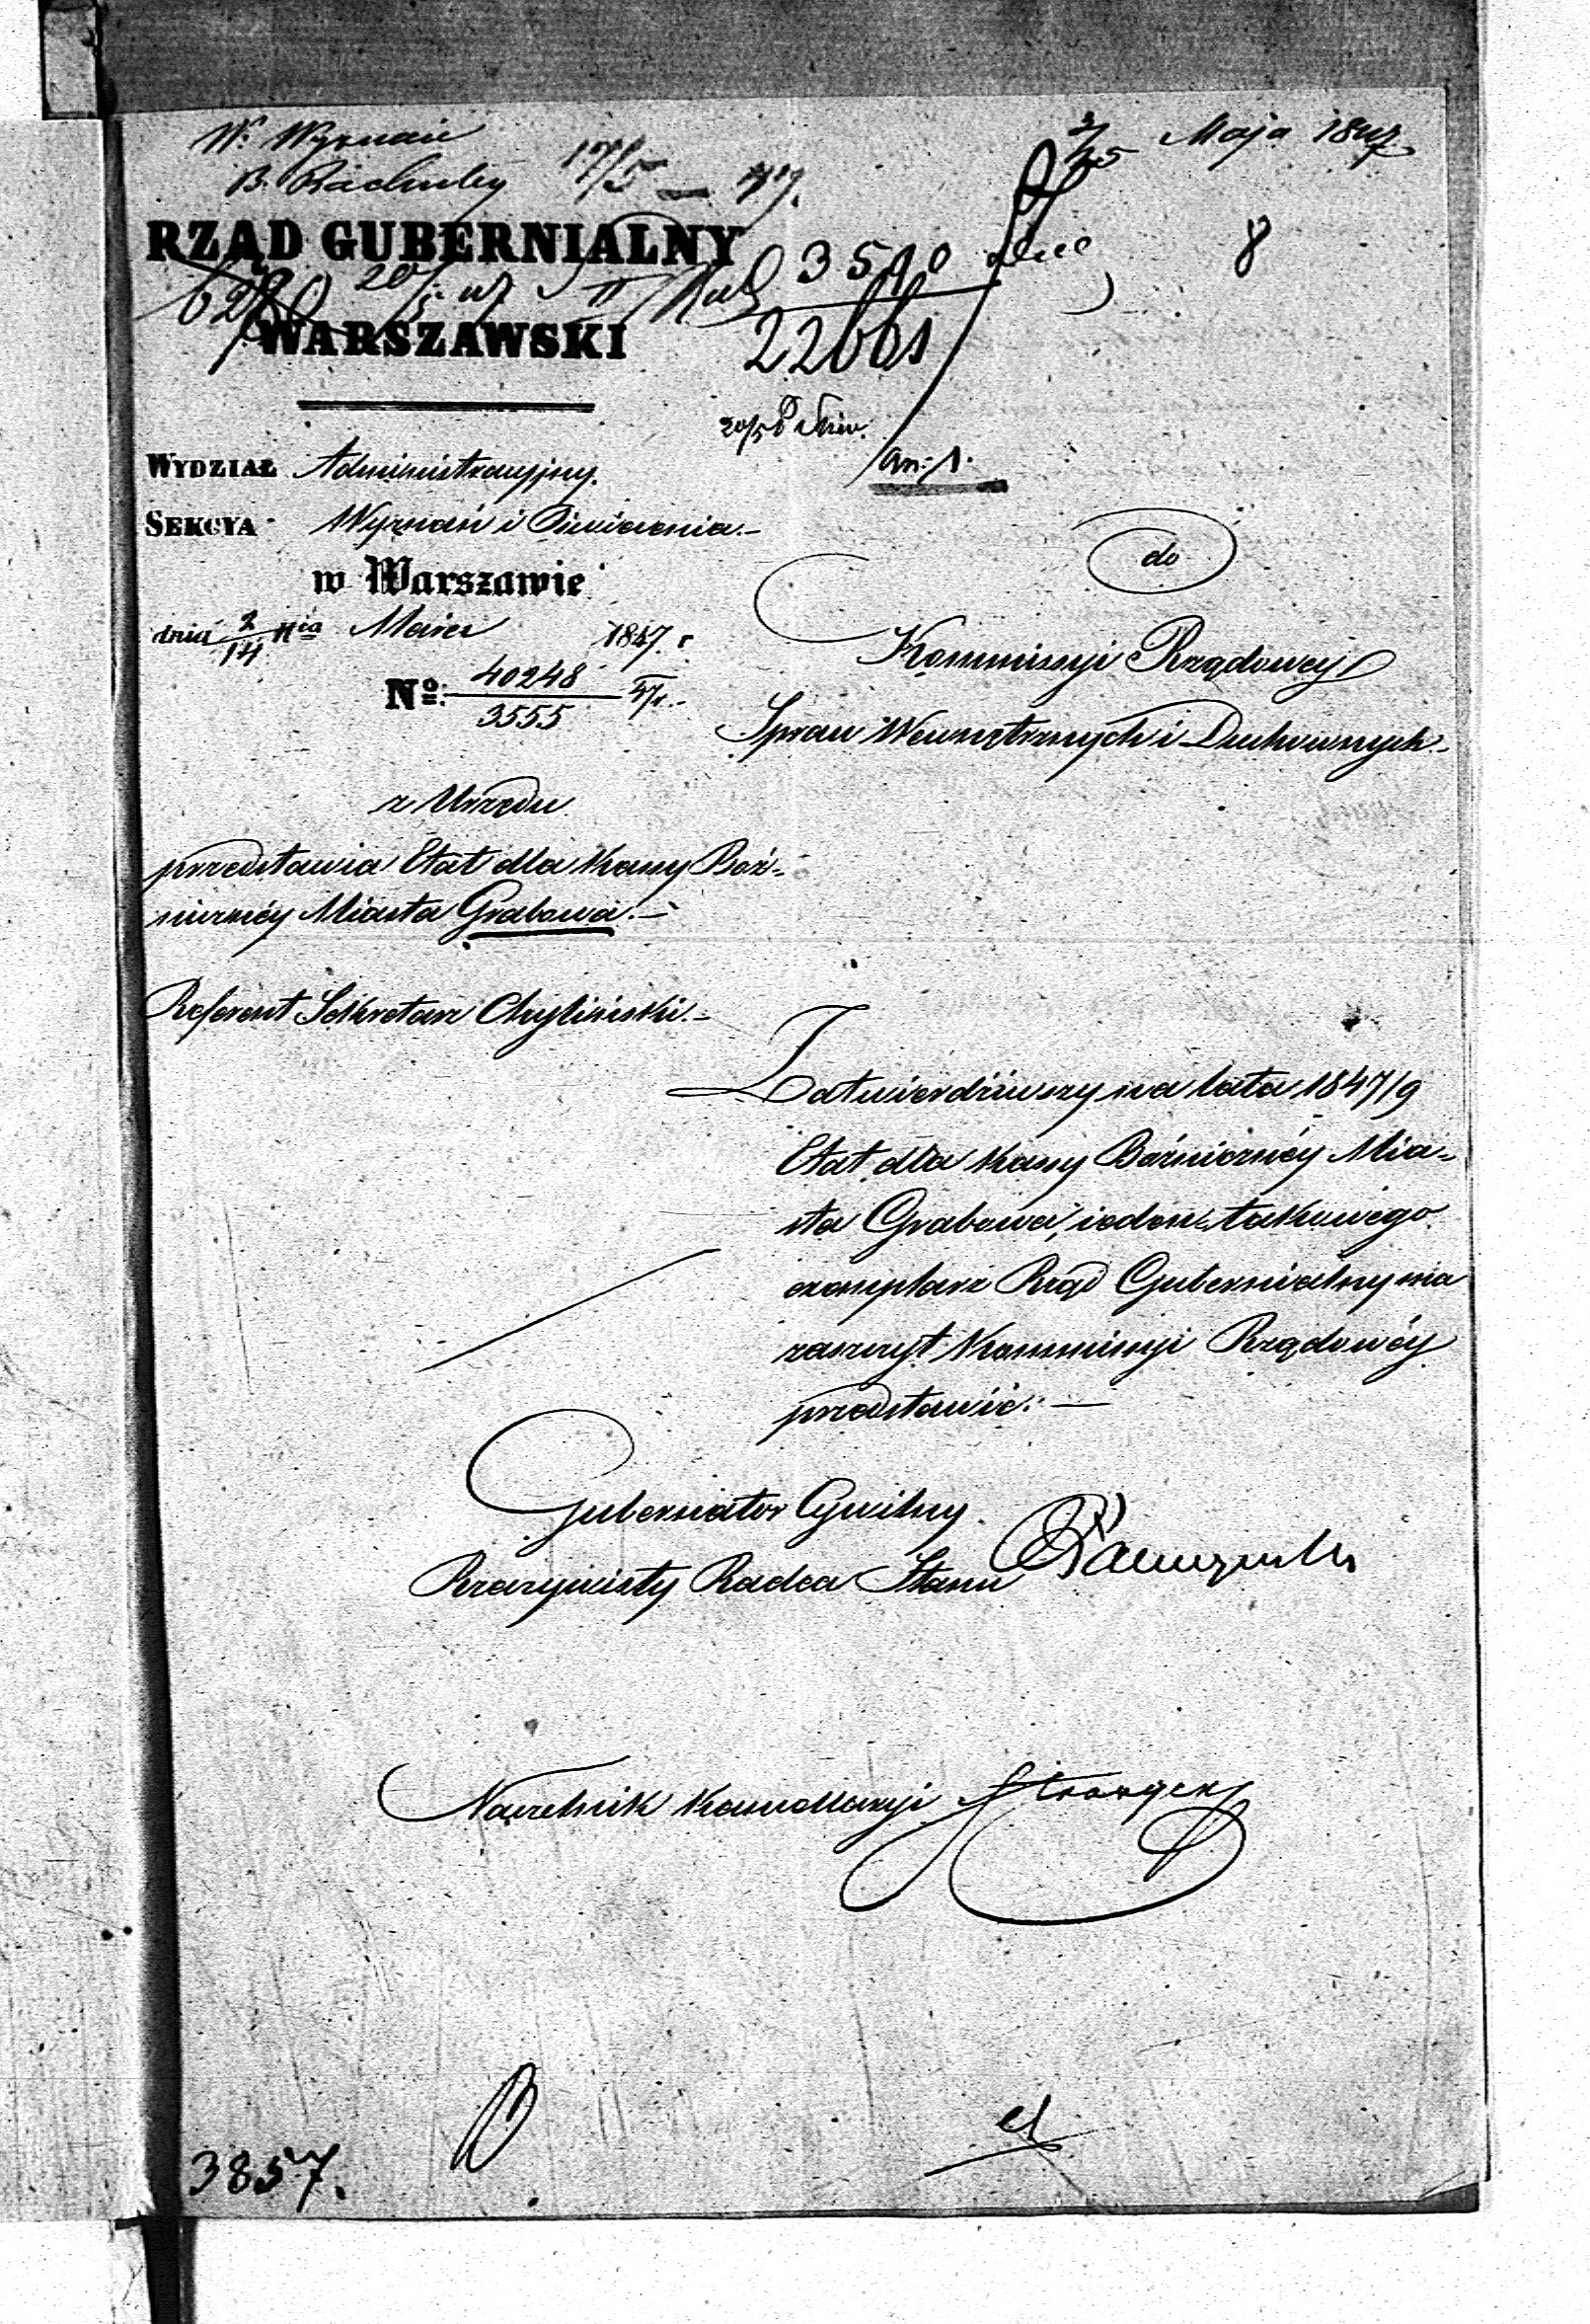 W. Wyznań
3/15 Maja 1847
B. Rachuby 17/5 — 47.
RZĄD GUBERNIALNY
8
3510
WARSZAWSKI
22661
20/5
an: 1.
WYDZIAŁ Administracyjny.
SEKCYA Wyznań i Oświecenia.-
w Warszawie
dnia 2/14 Maia 1847. r
No: 40248/3555 47r.-
do
Kommissyi Rządowey
Spraw Wewnętrznych i Duchownych.-
z Urzędu
przedstawia Etat dla Kassy Boż-
niczney Miasta Grabowa.-
Referent Sekretarz Chyliński.-
Zatwierdziwszy na lata 1847/9
Etat dla Kassy Bóźniczney Mia-
sta Grabowa, ieden takowego
exemplarz Rząd Gubernialny ma
zaszczyt Kommissyi Rządowéy
przedstawić.-
Gubernator Cywilny
Rzeczywisty Radca Stanu
Naczelnik Kancellaryi
3857.